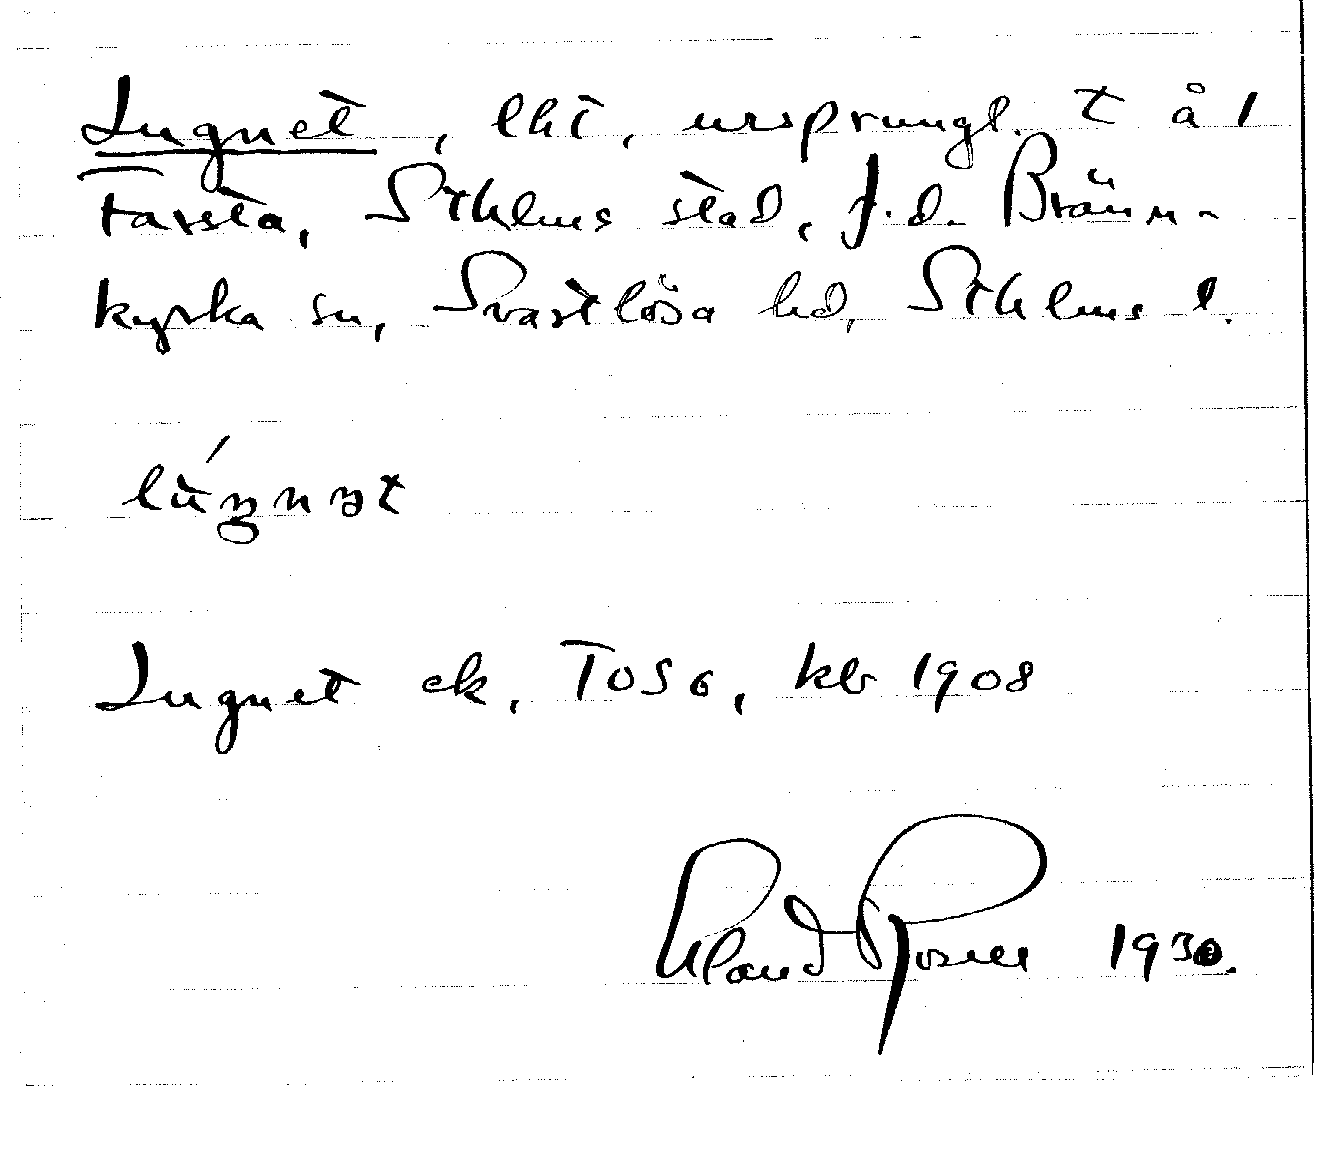 Lugnet, lht, ursprungl. t å 1
Farsta, Sthlms stad, f.d. Bränn-
kyrka sn, Svartlösa hd, Sthlms l.
lúgnət
Lugnet ek, T056, kb 1908
1930.